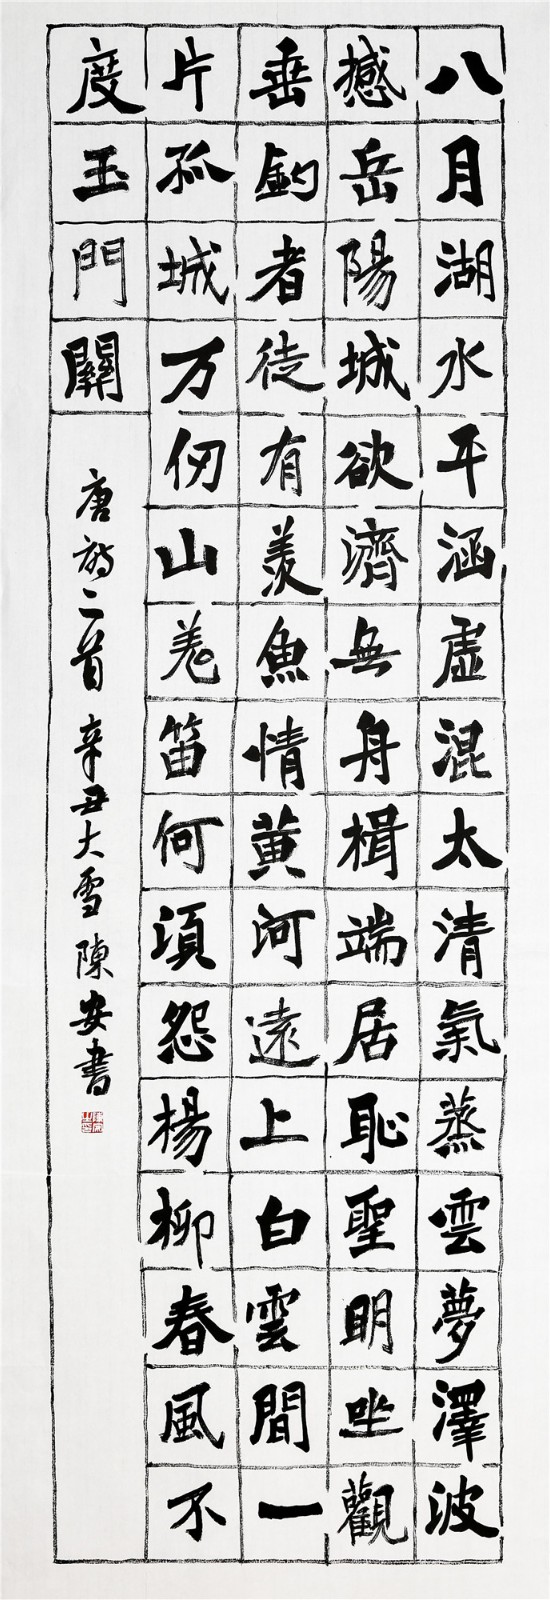 八月湖水平涵虛混太清氣蒸雲夢澤波
撼岳陽城欲濟無舟楫端居恥聖明坐觀
垂釣者徒有羨魚情黃河遠上白雲間一
片孤城万仞山羌笛何須怨楊柳春風不
度玉門關
唐詩二首 辛丑大雪 陳安書